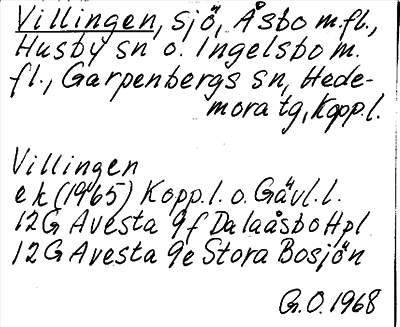 Villingen, sjö, Åsbo m.fl.,
Husby sn o. Ingelsbo m.
fl., Garpenbergs sn, Hede-
mora tg, Kopp.l.
Villingen
ek (1965) Kopp.l. o. Gävl.l.
12G Avesta 9f Dalaåsbo Hpl
12G Avesta 9e Stora Bosjön
G.O. 1968